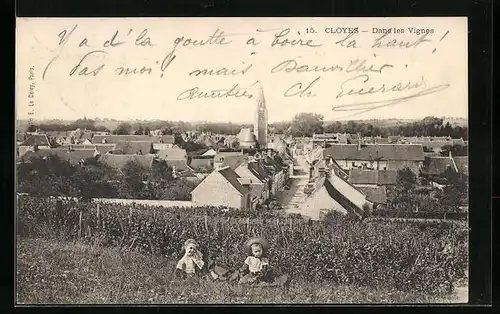 15. CLOYES – Dans les Vignes
Y a d' la goutte à boire là haut !
Pas moi ! mais
Amitiés Ch. Guérard
E. Le Deley, Paris.